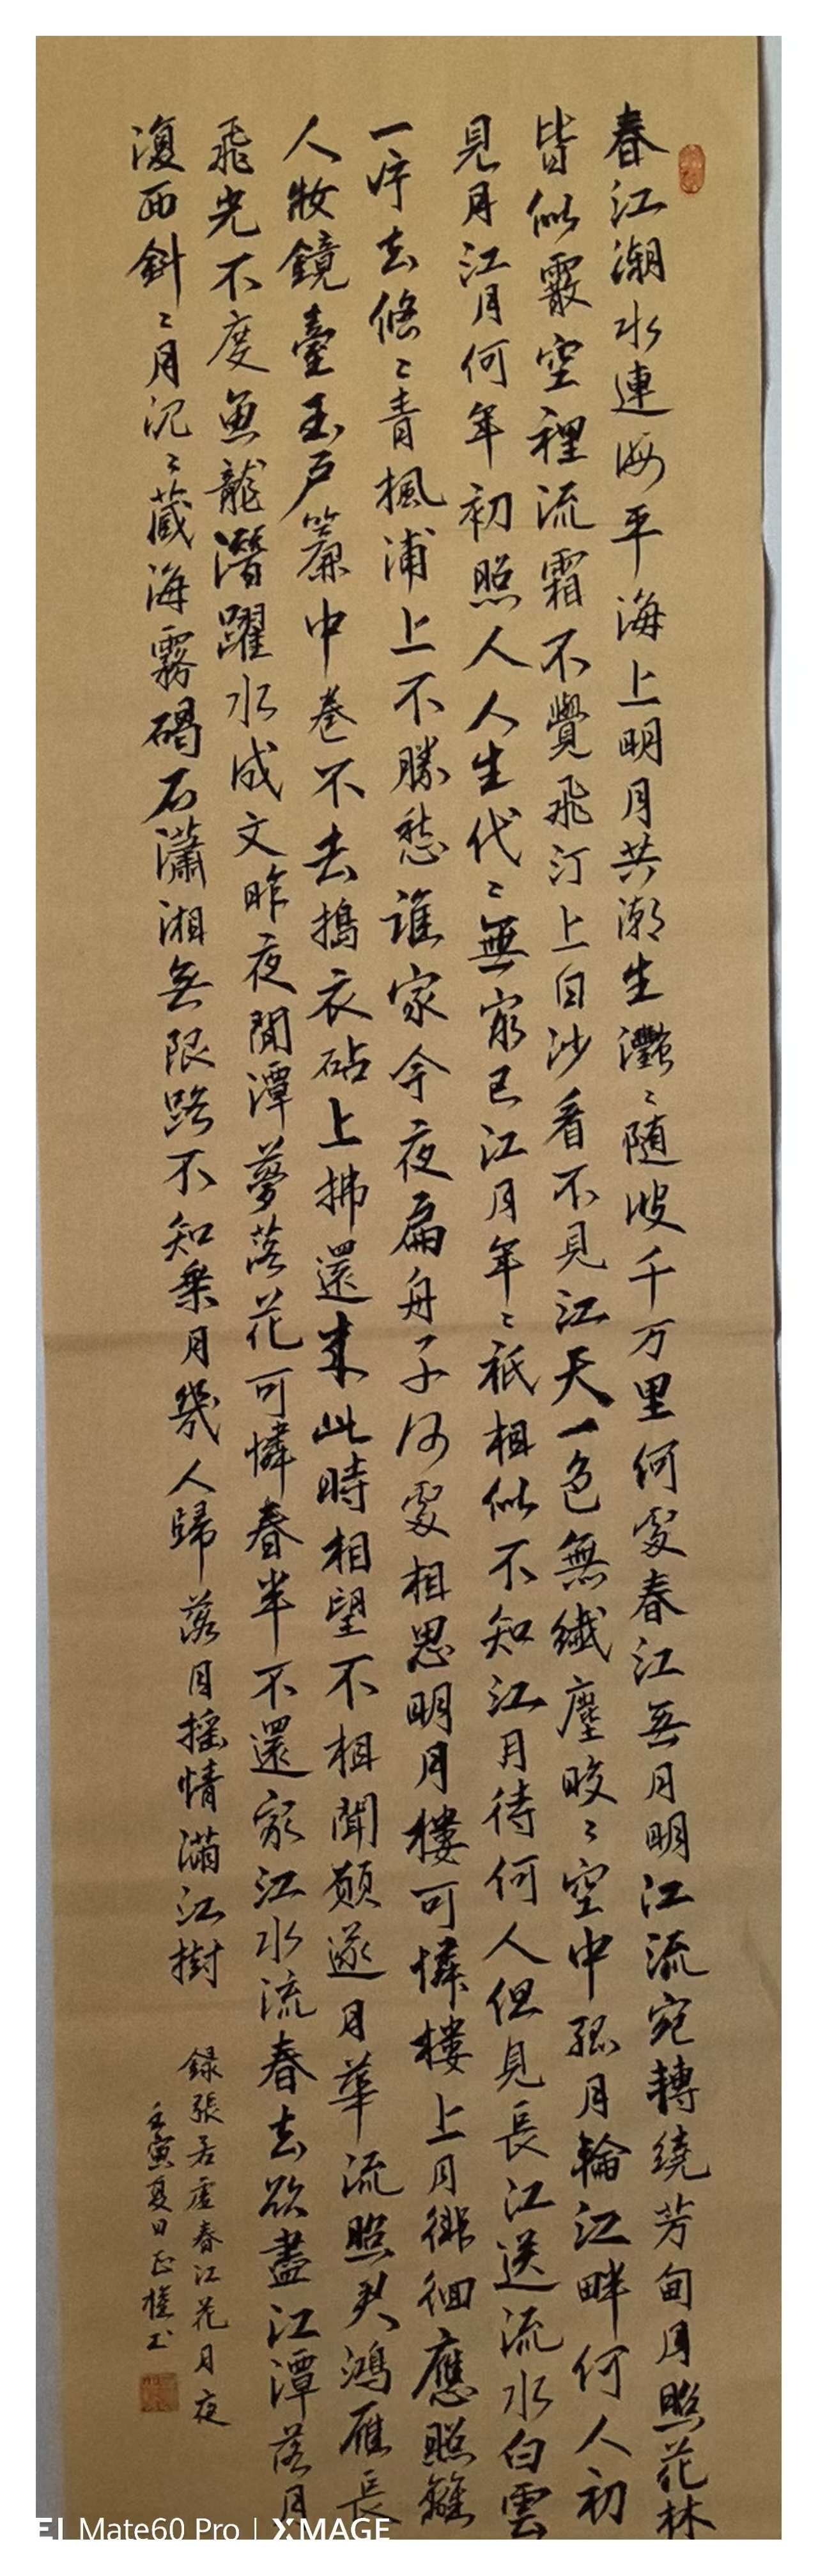 春江潮水連海平海上明月共潮生灩〻随波千万里何處春江無月明江流宛轉繞芳甸月照花林
皆似霰空裡流霜不覺飛汀上白沙看不見江天一色無纖塵皎〻空中孤月輪江畔何人初
見月江月何年初照人人生代〻無窮已江月年〻祇相似不知江月待何人但見長江送流水白雲
一片去悠〻青楓浦上不勝愁誰家今夜扁舟子何處相思明月樓可憐樓上月徘徊應照離
人妝鏡臺玉戶簾中卷不去搗衣砧上拂還来此時相望不相聞願逐月華流照君鴻雁長
飛光不度魚龍潛躍水成文昨夜閒潭夢落花可憐春半不還家江水流春去欲盡江潭落月
復西斜〻月沉〻藏海霧碣石瀟湘無限路不知乗月幾人歸落月摇情滿江樹
録張若虛春江花月夜
壬寅夏日正權书
EI Mate60 Pro | XMAGE